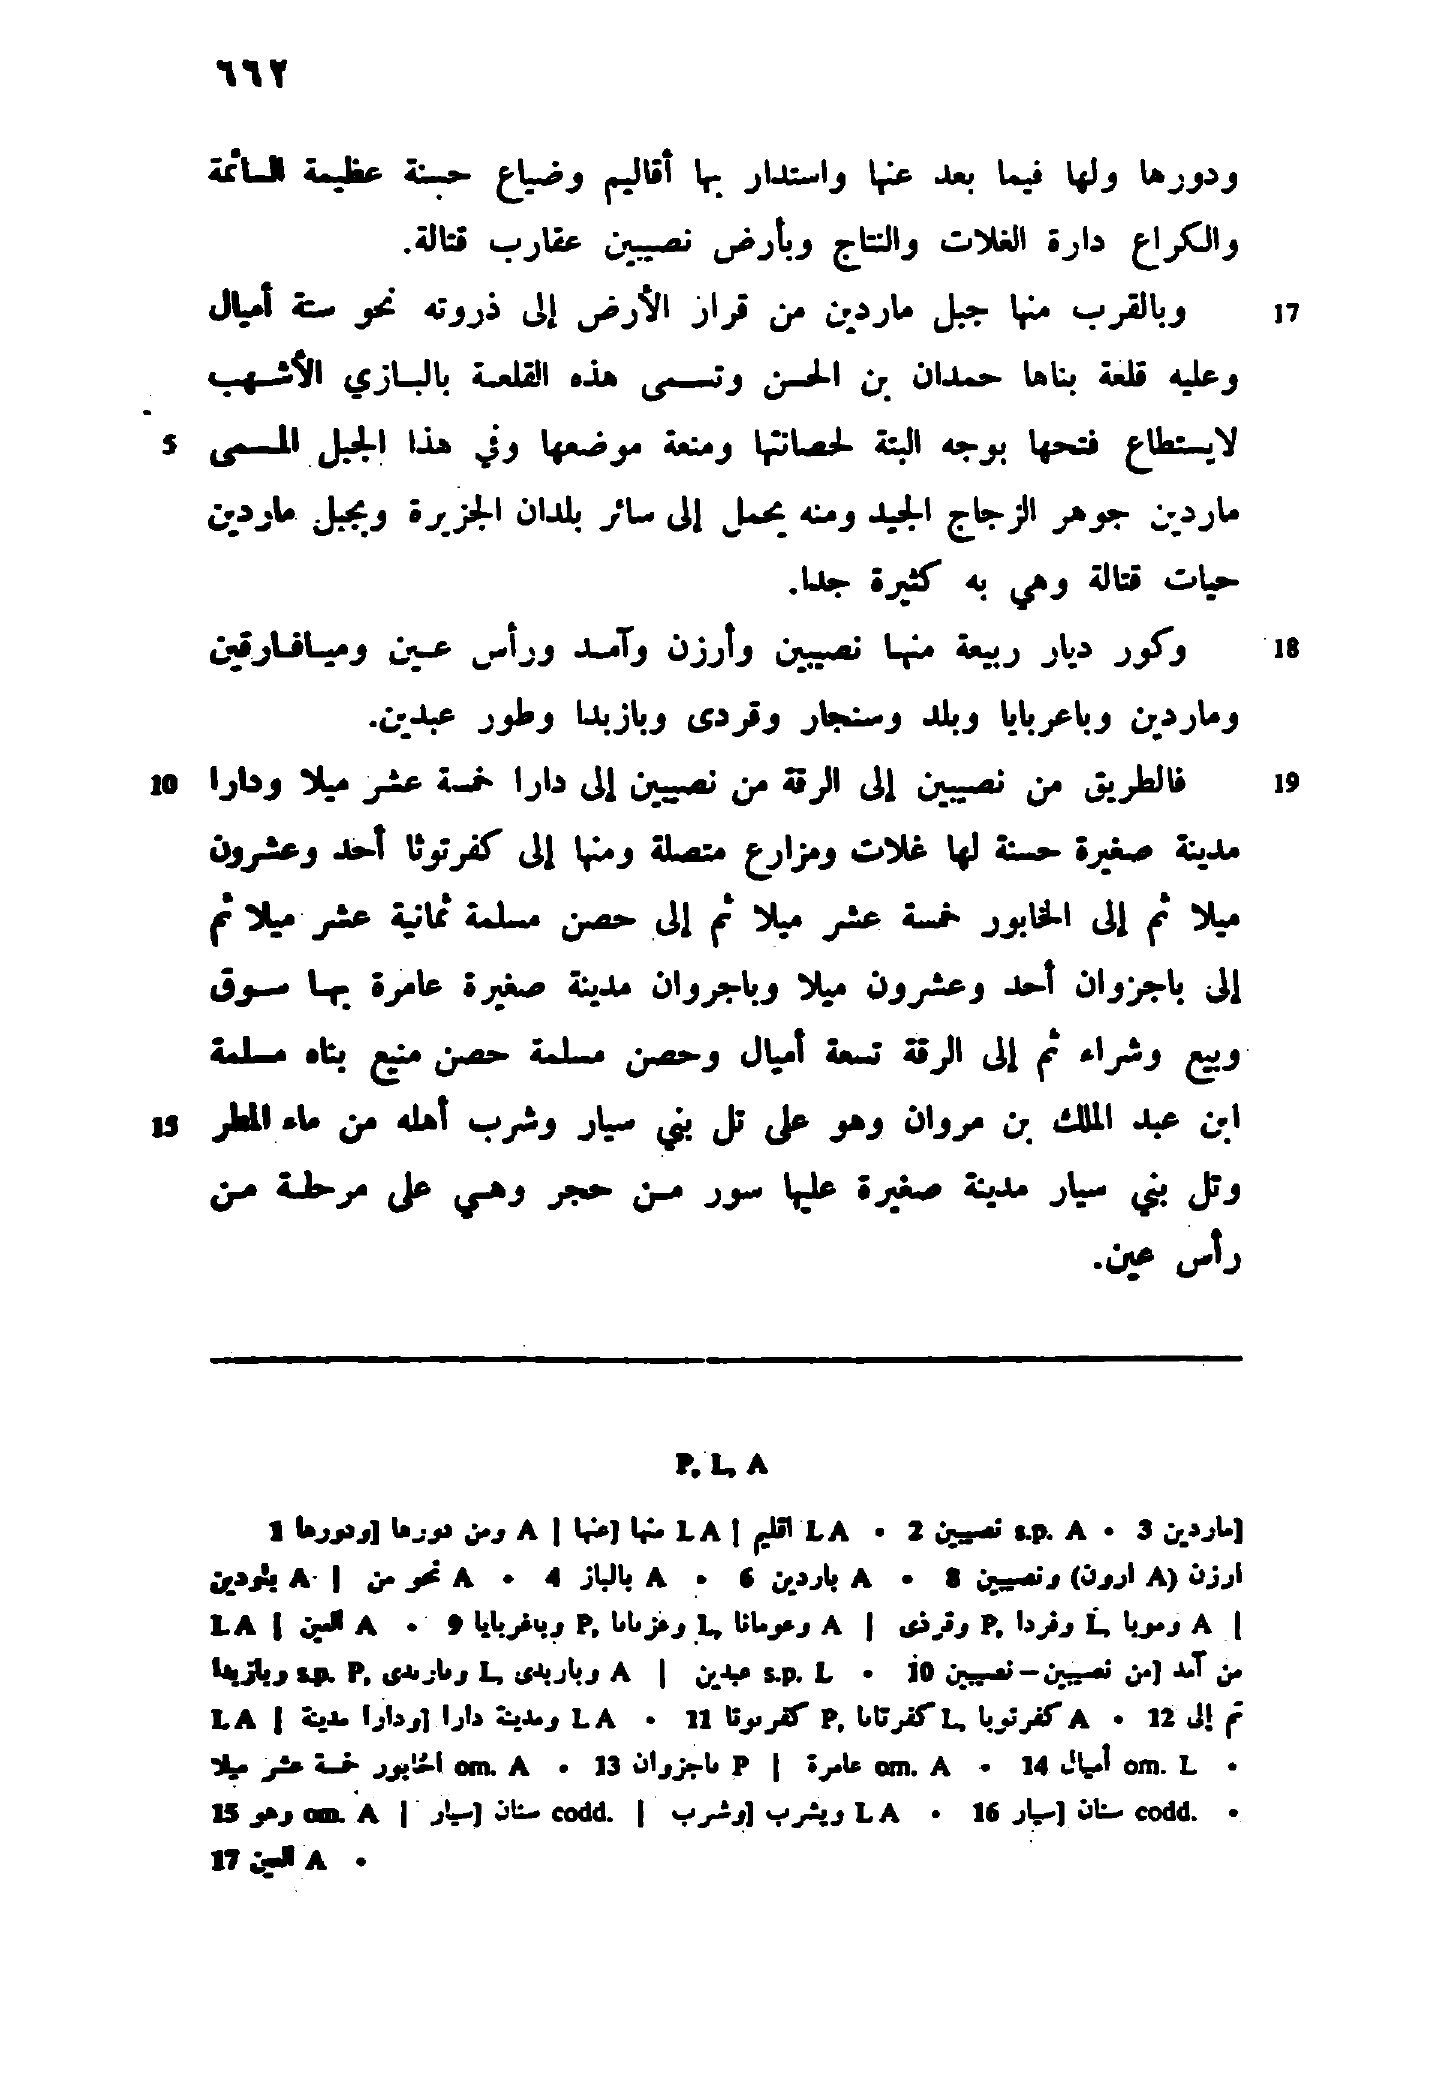 ٦٦٢
ودورها ولها فيما بعد عنها واستدار بها أقاليم وضياع حسنة عظيمة السائمة
والكراع دارة الغلات والنتاج وبأرض نصيبين عقارب قتالة.
17 وبالقرب منها جبل ماردين من قرار الأرض إلى ذروته نحو ستة أميال
وعليه قلعة بناها حمدان بن الحسن وتسمى هذه القلعة بالبازي الأشهب
5 لايستطاع فتحها بوجه البتة لحصانتها ومنعة موضعها وفي هذا الجبل المسمى
ماردين جوهر الزجاج الجيد ومنه يحمل إلى سائر بلدان الجزيرة وبجبل ماردين
حيات قتالة وهي به كثيرة جدا.
18 وكور ديار ربيعة منها نصيبين وأرزن وآمد ورأس عين وميافارقين
وماردين وباعربايا وبلد وسنجار وقردى وبازبدا وطور عبدين.
19 فالطريق من نصيبين إلى الرقة من نصيبين إلى دارا خمسة عشر ميلا ودارا 10
مدينة صغيرة حسنة لها غلات ومزارع متصلة ومنها إلى كفرتوثا أحد وعشرون
ميلا ثم إلى الخابور خمسة عشر ميلا ثم إلى حصن مسلمة ثمانية عشر ميلا ثم
إلى باجزوان أحد وعشرون ميلا وباجروان مدينة صغيرة عامرة بها سوق
وبيع وشراء ثم إلى الرقة تسعة أميال وحصن مسلمة حصن منيع بناه مسلمة
15 ابن عبد الملك بن مروان وهو على تل بني سيار وشرب أهله من ماء المطر
وتل بني سيار مدينة صغيرة عليها سور من حجر وهي على مرحلة من
رأس عين.
P, L, A
1 ودورها] ومن دورها A | عنها] منها L A | اقليم L A • 2 نصيبين s.p. A • 3 ماردين]
يثودين A | نحو من A • 4 بالباز A • 6 باردين A • 8 ونصيبين (A ارون) ارزن
L A | العين A • 9 وباغربايا P, وعزبابا L, وعومانا A | وقرذى P, وفردا L, وموبا A |
وبازبدا s.p. P, وماربدى L, وباربدى A | عبدين s.p. L • 10 من نصيبين – نصيبين] من آمد
L A | ودارا مدينة] ومدينة دارا L A • 11 كفربوتا P, كفرتابا L, كفرتوبا A • 12 ثم إلى
الخابور خمسة عشر ميلا om. A • 13 باجزوان P | عامرة om. A • 14 أميال om. L •
15 وهو om. A | سيار] سنان codd. | وشرب] ويشرب L A • 16 سيار] سنان codd. •
17 العين A •